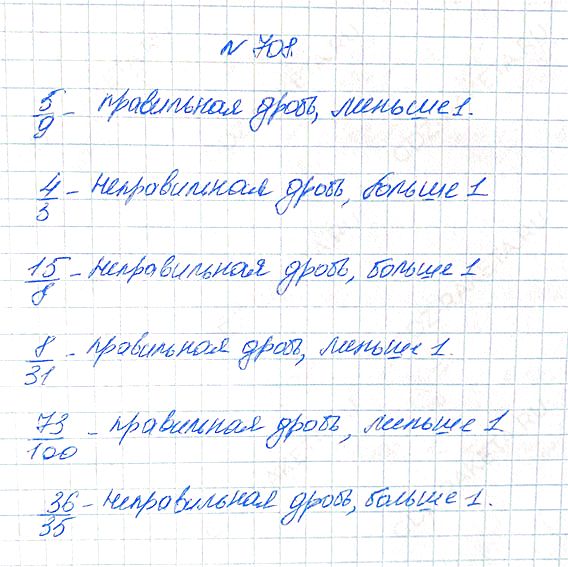 № 708.
5/9 - правильная дробь, меньше 1.
4/3 - неправильная дробь, больше 1
15/8 - неправильная дробь, больше 1
8/31 - правильная дробь, меньше 1.
73/100 - правильная дробь, меньше 1
36/35 - неправильная дробь, больше 1.